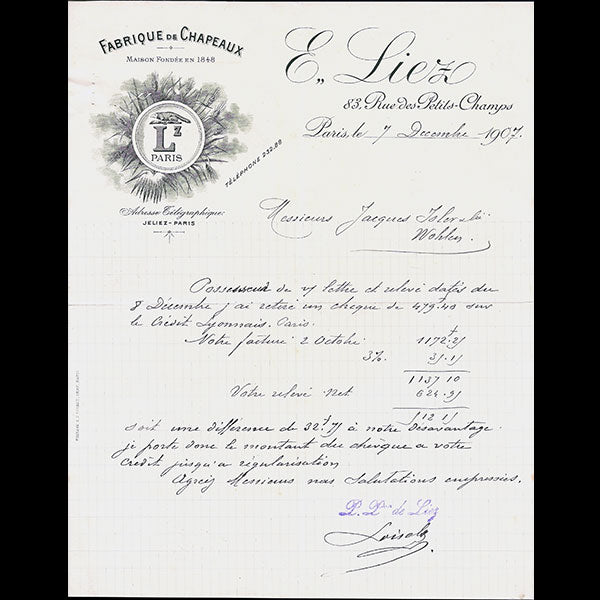 FABRIQUE DE CHAPEAUX
MAISON FONDÉE EN 1848
Lz
PARIS
TÉLÉPHONE 232.89
Adresse Télégraphique:
JELIEZ-PARIS
E. Liez
83, Rue des Petits-Champs
Paris, le 7 Décembre 1907.
Messieurs Jacques Isler & Cie
Wohlen.
Possesseur de v/ lettre et relevé datés du
8 Décembre j'ai retiré un chèque de 479.40 sur
le Crédit Lyonnais. Paris.
Notre facture 2 Octobre 1172.25
3% 35.15
1137 10
Votre relevé Net 624.95
512 15
soit une différence de 32f.75 à notre désavantage
je porte donc le montant du chèque a votre
crédit jusqu'a régularisation
Agréez Messieurs nos Salutations empressées.
P. Pon de Liez